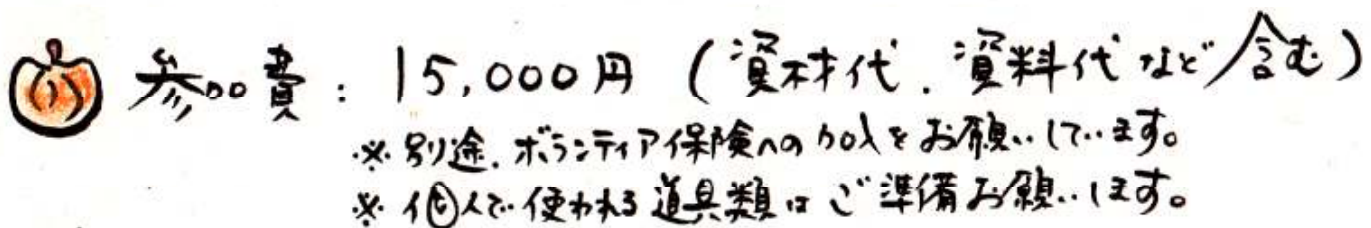 参加費：15,000円（資材代、資料代など含む）
※別途、ボランティア保険への加入をお願いしています。
※個人で使われる道具類はご準備お願いします。